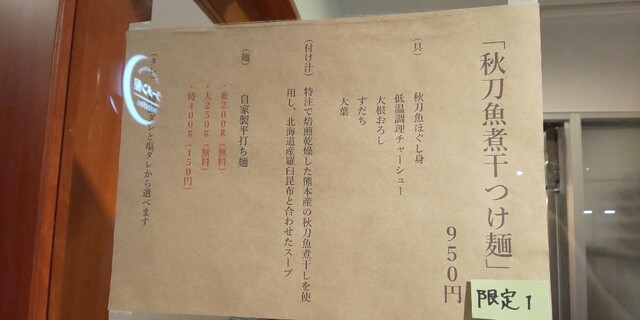 「秋刀魚煮干つけ麺」
950円
限定1
(具) 秋刀魚ほぐし身
低温調理チャーシュー
大根おろし
すだち
大葉
(付け汁) 特注で焙煎乾燥した熊本産の秋刀魚煮干しを使
用し、北海道産羅臼昆布と合わせたスープ
(麺) 自家製平打ち麺
・並200g(無料)
・大250g(無料)
・特400g(150円)
ダレと塩ダレから選べます